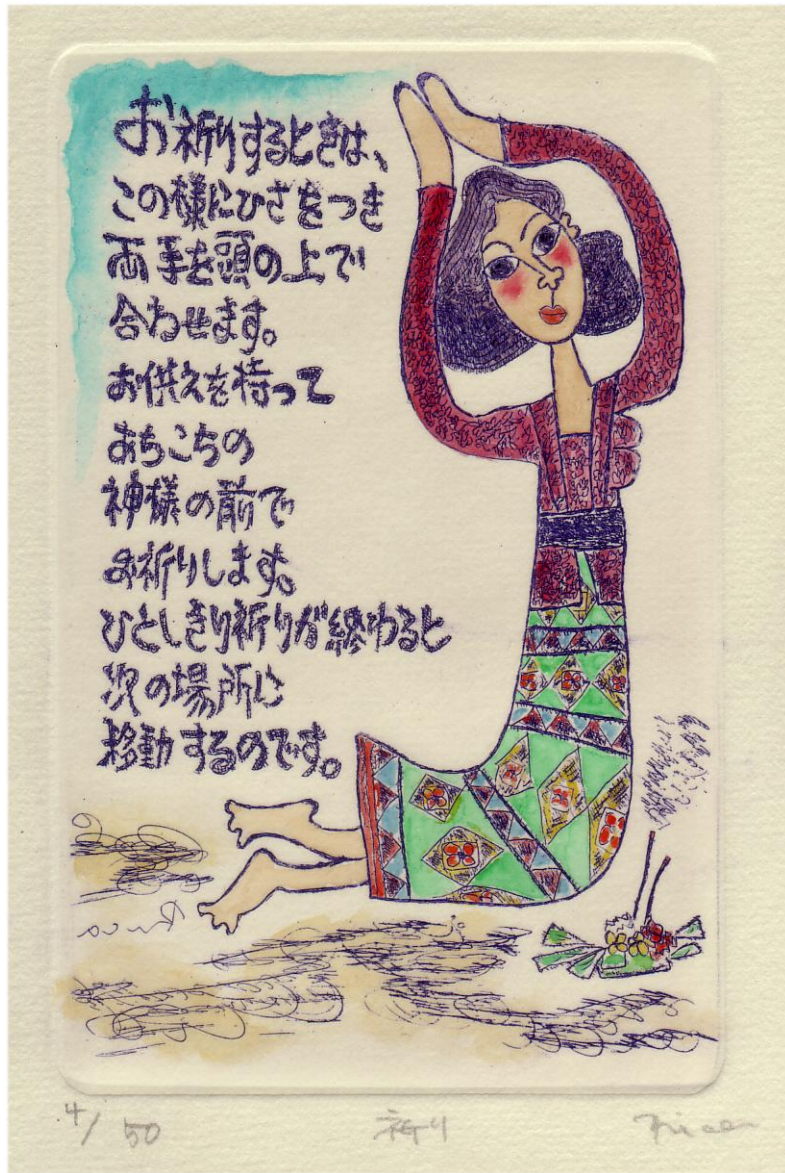 お祈りするときは、
この様にひざをつき
両手を頭の上で
合わせます。
お供えを持って
あちこちの
神様の前で
お祈りします。
ひとしきり祈りが終わると
次の場所に
移動するのです。
4/50
祈り